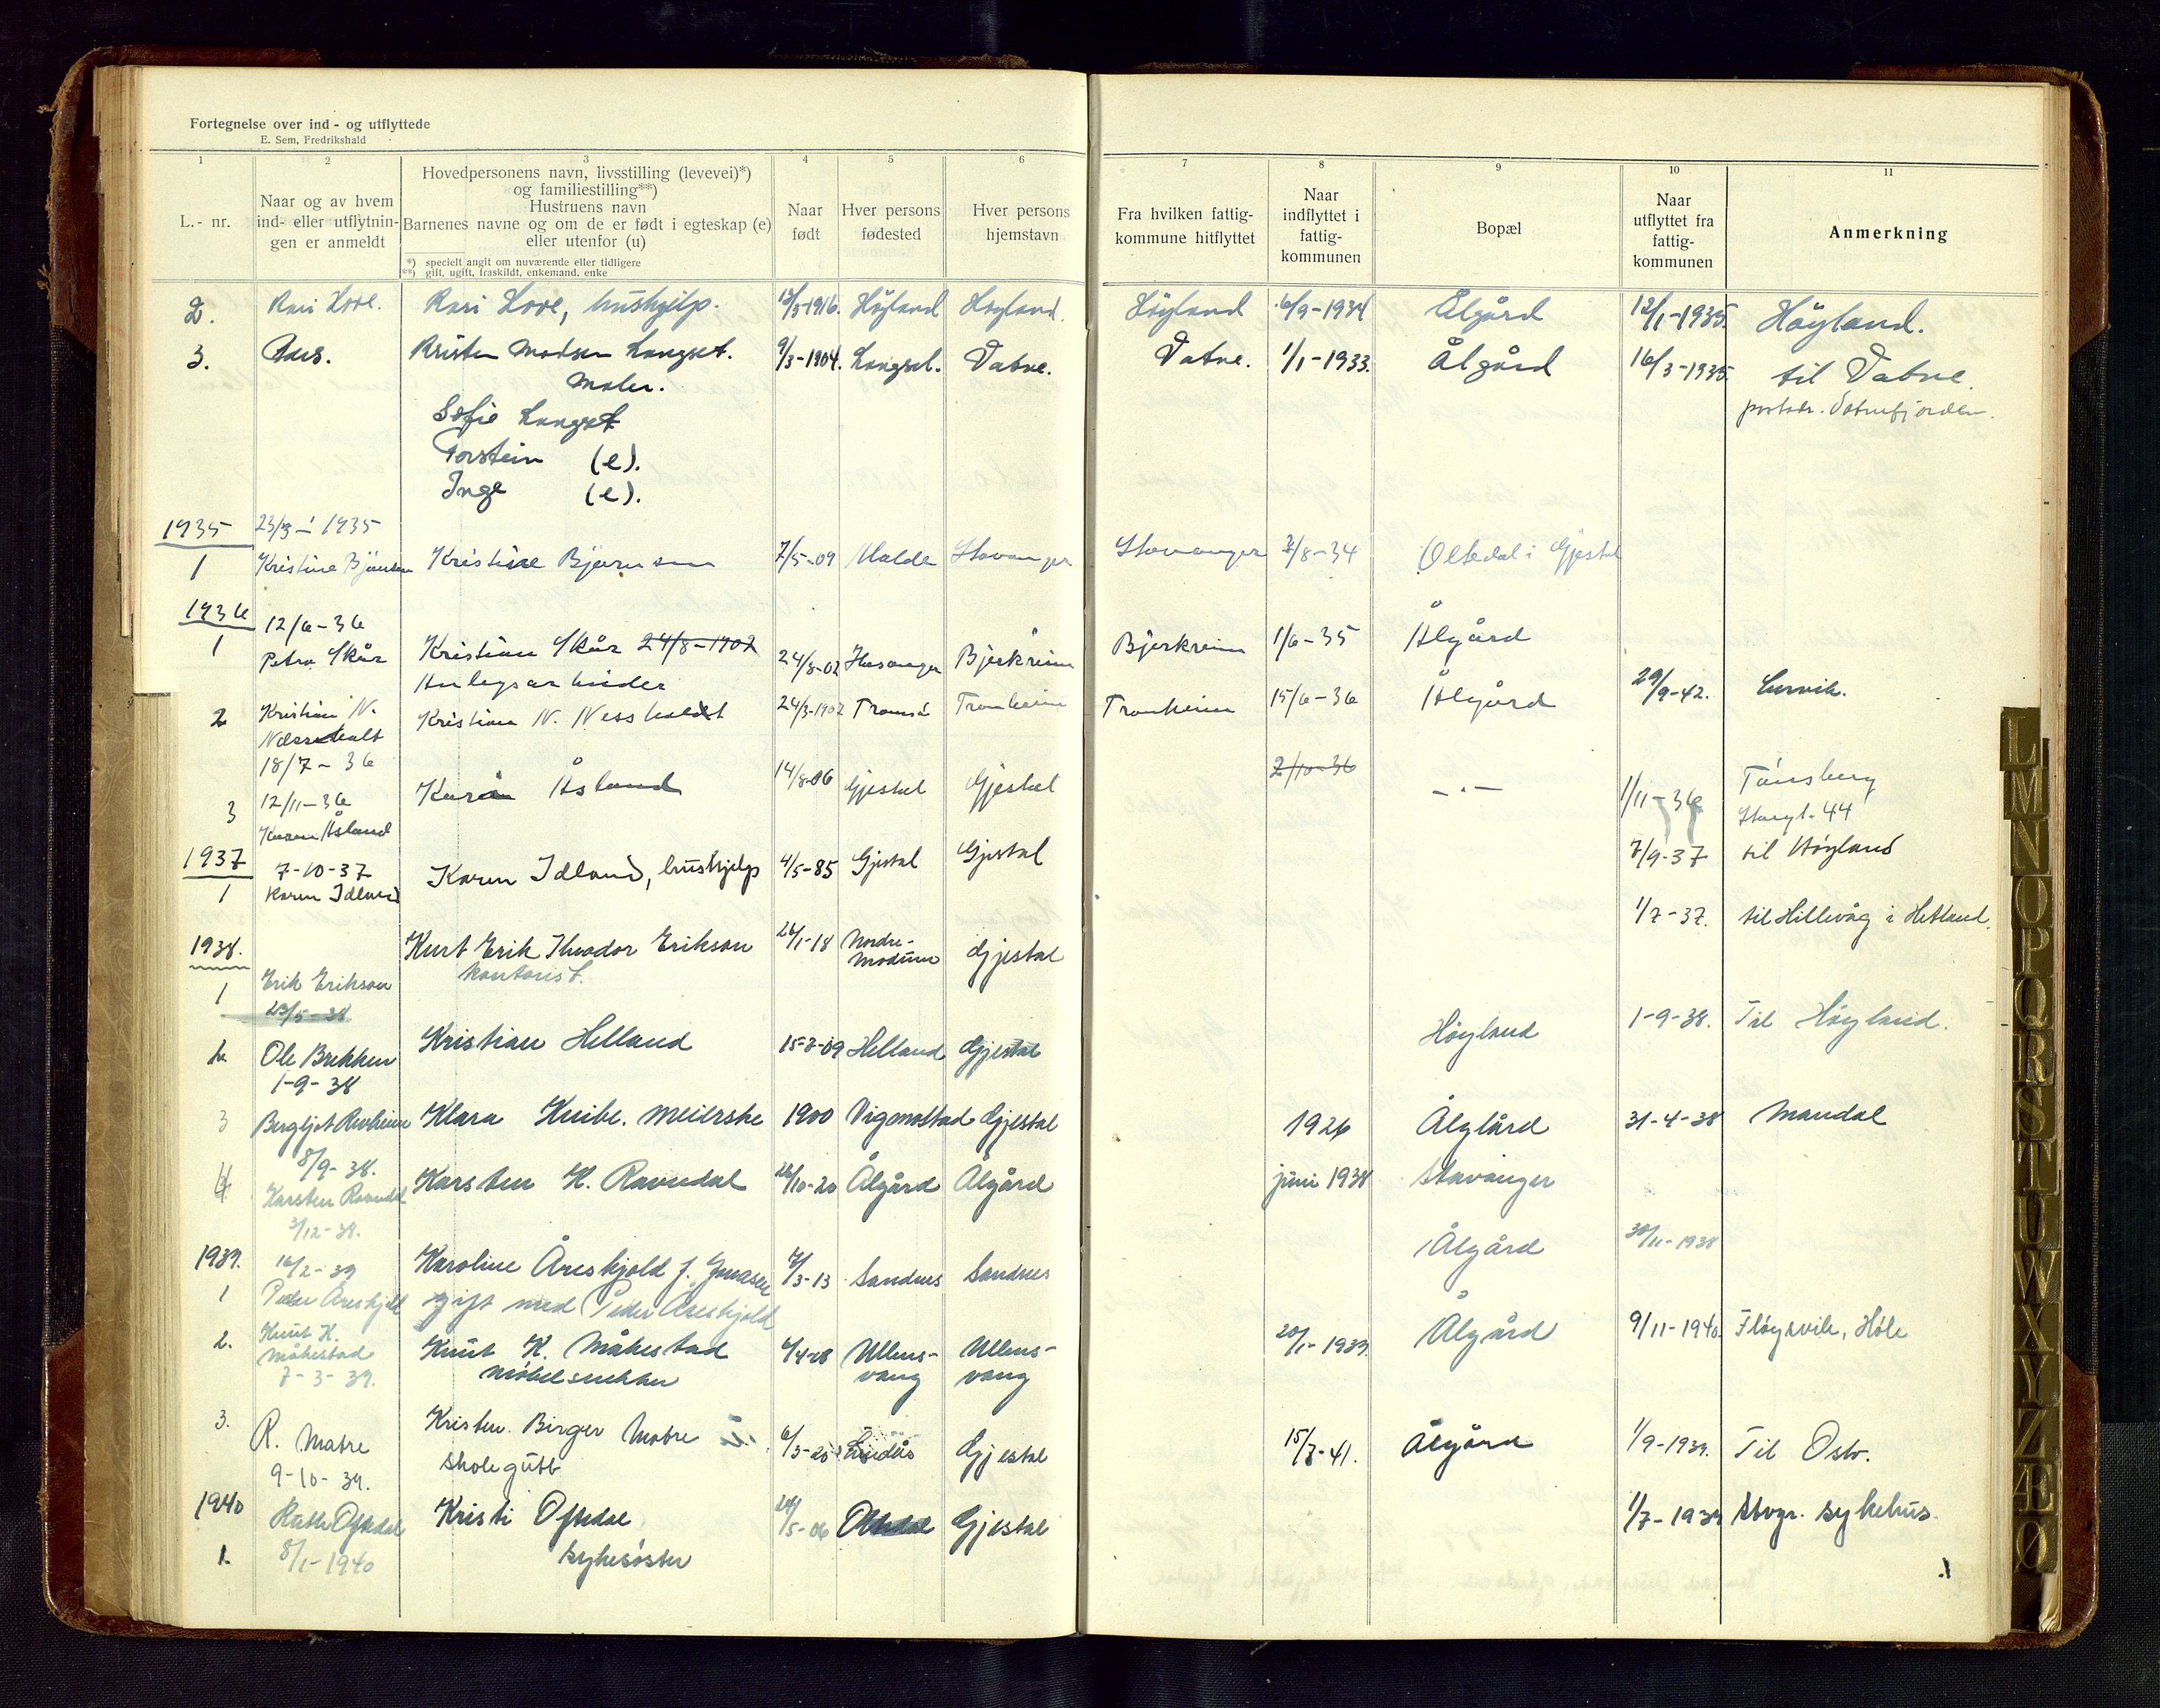 Fortegnelse over ind- og utflyttede
E. Sem, Fredrikshald
1 2 3 4 5 6 7 8 9 10 11
L.-nr.
Naar og av hvem
ind- eller utflytnin-
gen er anmeldt
Hovedpersonens navn, livsstilling (levevei)*)
og familiestilling**)
Hustruens navn
Barnenes navne og om de er født i egteskap (e)
eller utenfor (u)
*) specielt angit om nuværende eller tidligere
**) gift, ugift, fraskildt, enkemand. enke
Naar
født
Hver persons
fødested
Hver persons
hjemstavn
Fra hvilken fattig-
kommune hitflyttet
Naar
indflyttet i
fattig-
kommunen
Bopæl
Naar
utflyttet fra
fattig-
kommunen
Anmerkning
2. Kari Love, hushjelp. 1916. Höyland Høyland. Höyland 6/9-1934 Ålgård 12/1-1935. Høyland.
3. Kristen Madsen Langset. 9/3-1904. Langset. Vatne. Vatne. 1/1-1933. Ålgård 16/3-1935. til Vatne.
Maler. postadr. Vatnefjorden.
Sofie Langset
Torstein (e).
Inge (e).
1935 23/3-1935
1 Kristine Bjørnsen Kristine Bjørnsen 7/5-09 Stavanger Stavanger /8-34 Oltedal i Gjestal
1936 12/6-36
1 Petra Skår Kristian Skår 24/8-1902 24/8-02 Bjerkreim Bjerkreim 1/6-35 Ålgård
Anlegsarbeider
2 Kristian N. Kristian N. Nessholdt 24/3-1902 Tromsø Tronheim Tronheim 15/6-36 Ålgård 29/9-42.
18/7-36
3 12/11-36 Karen Åsland 14/8-06 Gjestal Gjestal 2/10-36 -"- 1/11-36 Tønsberg
Karen Åsland 44
1937 7-10-37 Karen Idland, hushjelp 4/5-85 Gjestal Gjestal 7/9-37 til Høyland
1 Karen Idland
1938. Kurt Erik Theodor Erikson 26/1-18 Nordre- Modum Gjestal 1/7-37. til Hillevåg i Hetland.
1 Erik Erikson kontorist.
23/5-38
2. Ole Brekken Kristian Helland 15-8-09 Helland Gjestal Høyland 1-9-38. Til Høyland.
1-9-38
3 Klara Knibe. meierske 1900 Vigmostad Gjestal 1926 Ålgård 31-4-38 Mandal
8/9-38.
4 Karsten Ravndal Karsten K. Ravndal /10-20 Ålgård Ålgård juni 1938 Stavanger
3/12-38.
1939. 16/2-39 Karoline Åreskjold f. Jonassen /3-13 Sandnes Sandnes Ålgård 30/11-1938
1 Peder Åreskjold gift med Peder Åreskjold
2. Knut K. Knut K. Måkestad 6/4-18 Ullens- Ullens- 20/1-1939. Ålgård 9/11-1940 Fløysvik, Høle
Måkestad møbelsnekker vang vang
7-3-39.
3. R. Matre Kristen Birger Matre 6/3-20 Lindås Gjestal 15/7-41. Ålgård 1/9-1939. Til Oslo.
9-10-39. skolegutt
1940 Ruth Oftedal Kristi Oftedal 24/5-06 Gjestal 1/7-1939 Stvgr. sykehus.
1. 8/1-1940 sykesøster
L
M
N
O
P
Q
R
S
T
U
W
X
Y
Z
Æ
Ø